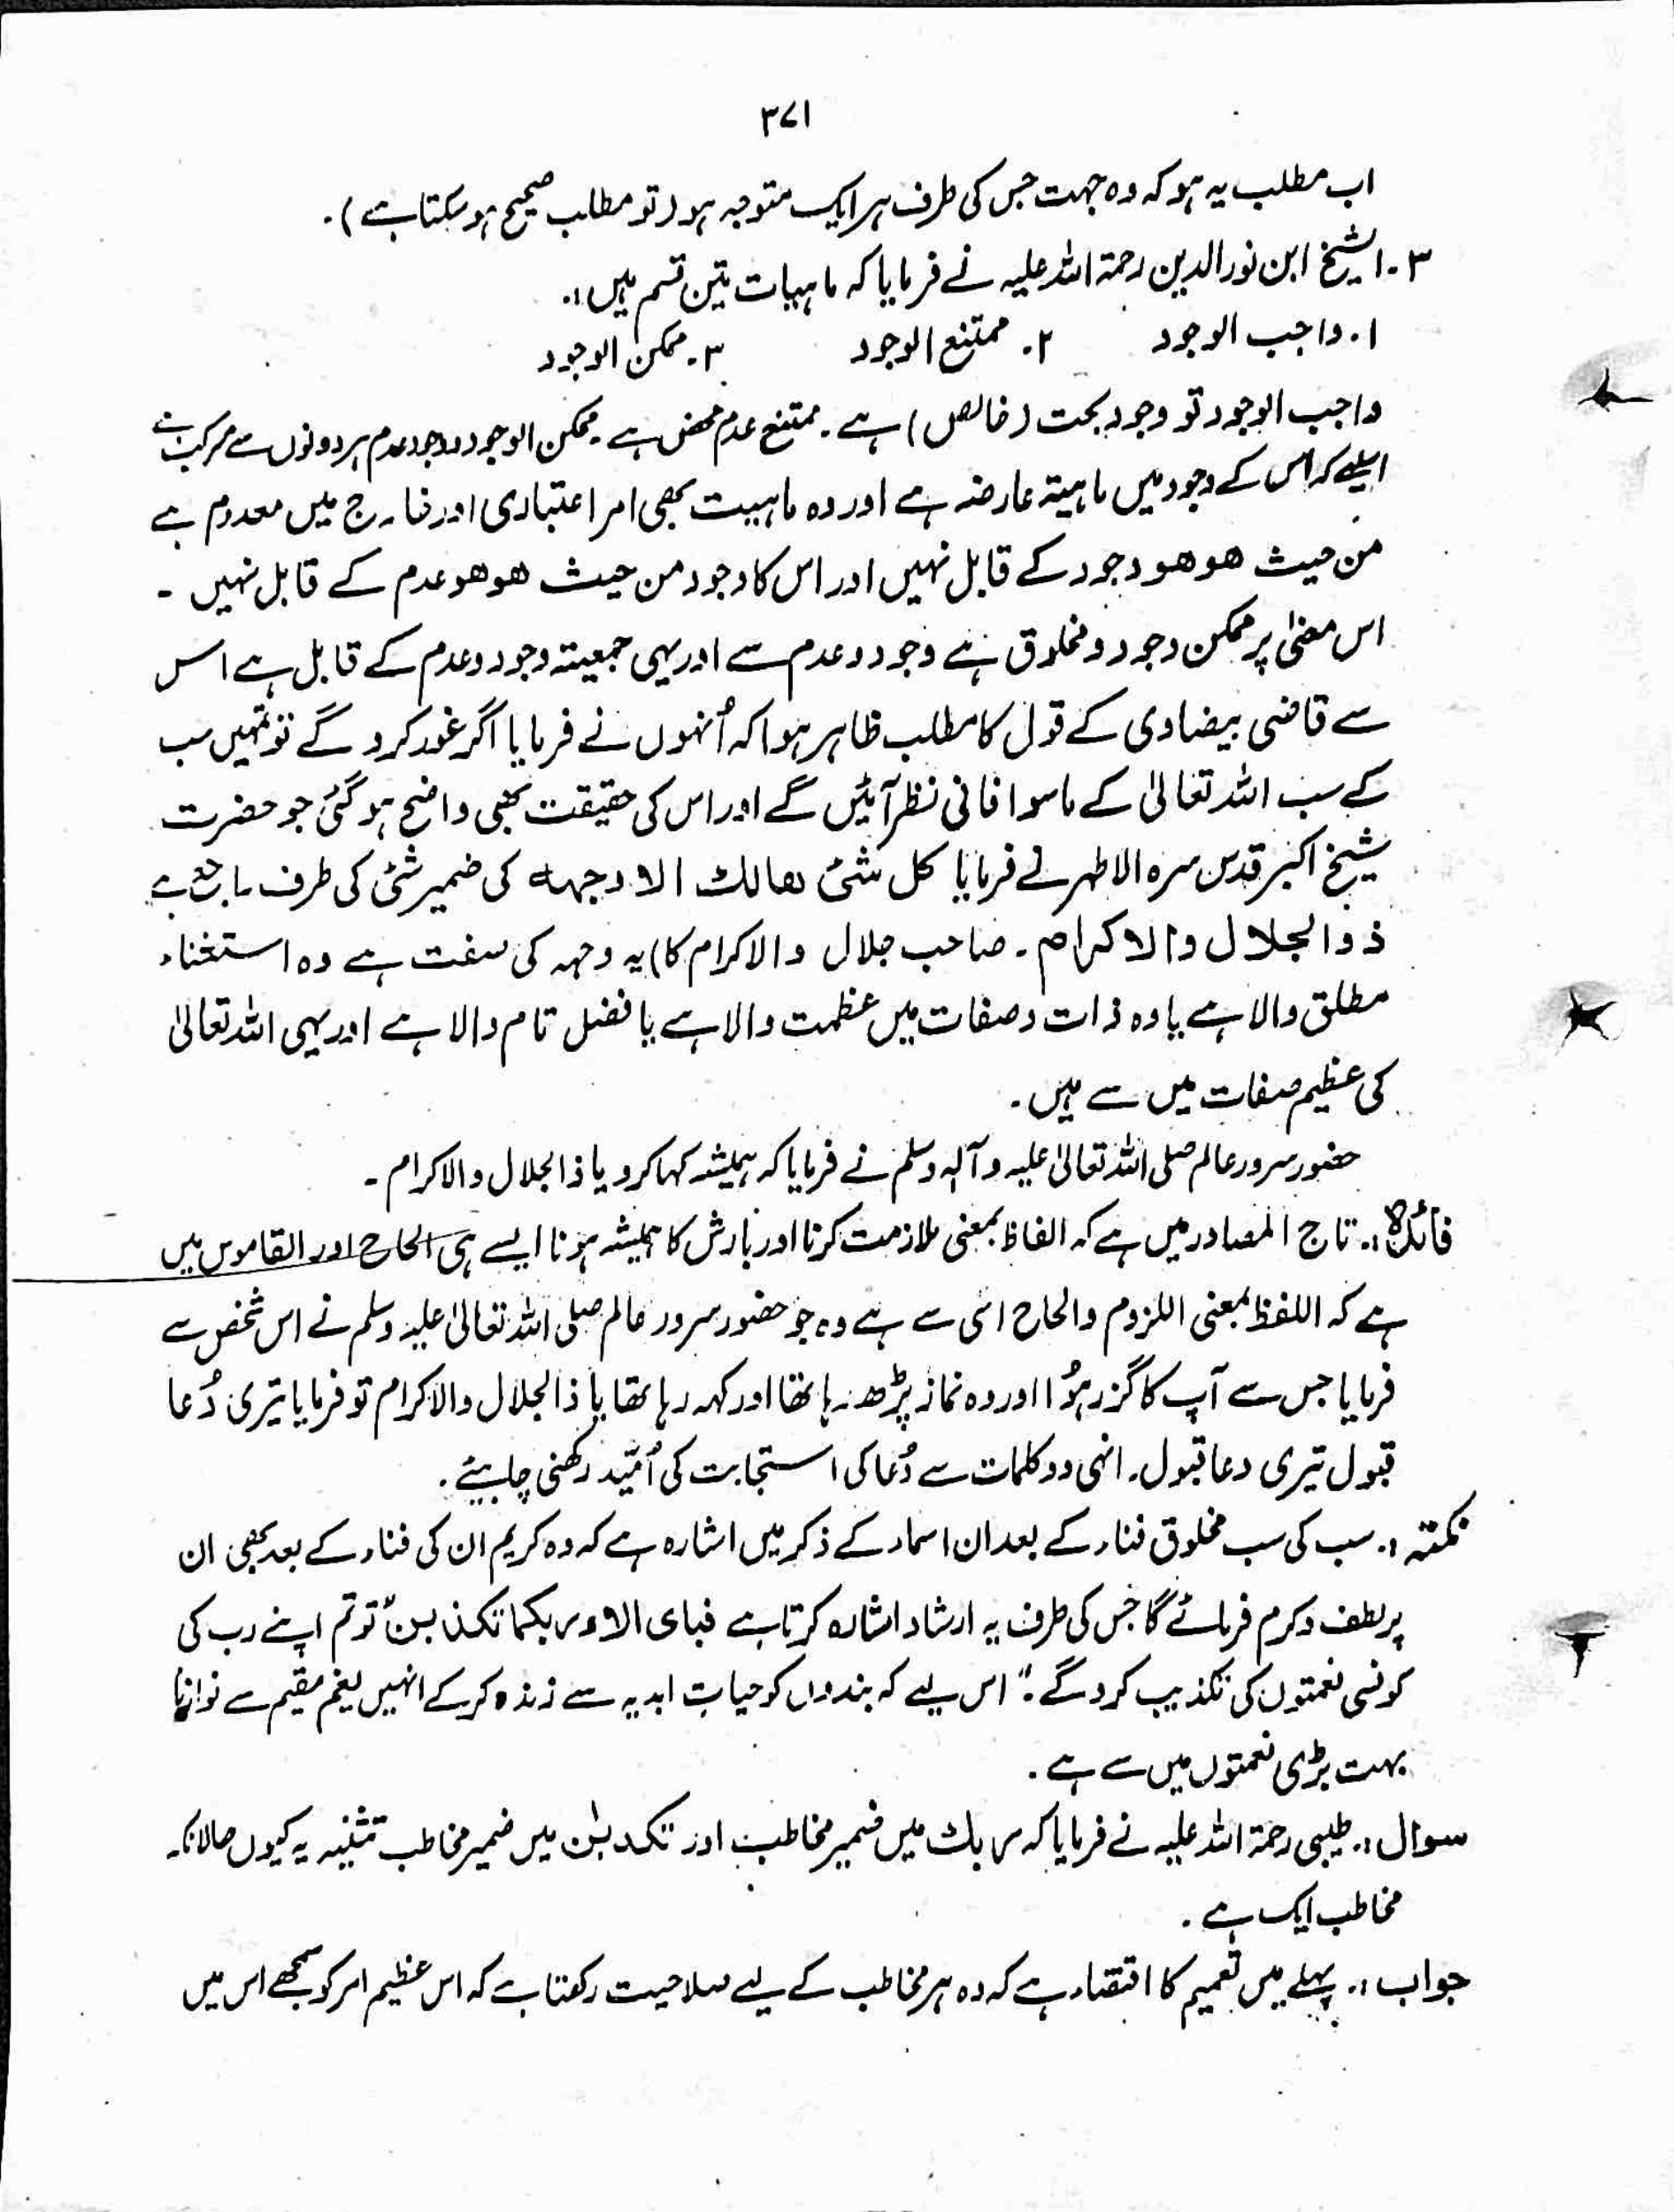 ۳۷۱
اب مطلب یہ ہو کہ وہ جہت جس کی طرف ہر ایک متوجہ ہو (تو مطلب صحیح ہو سکتا ہے)۔
۳۔ الشیخ ابن نور الدین رحمۃ اللہ علیہ نے فرمایا کہ ماہیات تین قسم ہیں:۔
۱۔ واجب الوجود ۲۔ ممتنع الوجود ۳۔ ممکن الوجود
واجب الوجود تو وجود بحت (خالص) ہے۔ ممتنع عدم محض ہے۔ ممکن الوجود وجود عدم ہر دونوں سے مرکب ہے
اسلیے کہ اس کے وجود میں ماہیتہ عارضہ ہے اور وہ ماہیت بھی امر اعتباری اور خارج میں معدوم ہے
من حیث ھو ھو وجود کے قابل نہیں اور اس کا وجود من حیث ھو ھو عدم کے قابل نہیں ۔
اس معنیٰ پر ممکن وجود و مخلوق ہے وجود و عدم سے اور یہی جمعیتہ وجود و عدم کے قابل ہے اس
سے قاضی بیضاوی کے قول کا مطلب ظاہر ہوا کہ اُنہوں نے فرمایا اگر غور کرو گے تو تمہیں سب
کے سب اللہ تعالیٰ کے ماسوا فانی نظر آئیں گے اور اس کی حقیقت بھی واضح ہو گئی جو حضرت
شیخ اکبر قدس سرہ الاطہر نے فرمایا کل شئ ھالک الا وجہہ کی ضمیر شئی کی طرف راجع ہے
ذو الجلال والاکرام۔ صاحب جلال والاکرام کا) یہ وجہہ کی صفت ہے وہ استغناء
مطلق والا ہے یا وہ ذات و صفات میں عظمت والا ہے یا فضل تام والا ہے اور یہی اللہ تعالیٰ
کی عظیم صفات میں سے ہیں۔
حضور سرور عالم صلی اللہ تعالیٰ علیہ وآلہ وسلم نے فرمایا کہ ہمیشہ کہا کرو یا ذالجلال والاکرام ۔
فائدہ:۔ تاج المصادر میں ہے کہ الفاظ بمعنی ملازمت کرنا اور بارش کا ہمیشہ ہونا ایسے ہی الحاح اور القاموس میں
ہے کہ اللفظ بمعنی اللزوم والحاح اسی سے ہے وہ جو حضور سرور عالم صلی اللہ تعالیٰ علیہ وسلم نے اس شخص سے
فرمایا جس سے آپ کا گزر ہؤا اور وہ نماز پڑھ رہا تھا اور کہہ رہا تھا یا ذالجلال والاکرام تو فرمایا تیری دُعا
قبول تیری دعا قبول۔ انہی دو کلمات سے دُعا کی استجابت کی اُمّید رکھنی چاہیئے۔
نکتہ:۔ سب کی سب مخلوق فناء کے بعد ان اسماء کے ذکر میں اشارہ ہے کہ وہ کریم ان کی فناء کے بعد بھی ان
پر لطف و کرم فرمائے گا جس کی طرف یہ ارشاد اشارہ کرتا ہے فبای الاء ربکما تکذبٰن "تو تم اپنے رب کی
کونسی نعمتوں کی تکذیب کرو گے۔" اس لیے کہ بندوں کو حیات ابدیہ سے زندہ کر کے انہیں نعیم مقیم سے نوازنا
بہت بڑی نعمتوں میں سے ہے۔
سوال:۔ طیبی رحمۃ اللہ علیہ نے فرمایا کہ ربک میں ضمیر مخاطب اور تکذبٰن میں ضمیر مخاطب تثنیہ یہ کیوں حالانکہ
مخاطب ایک ہے۔
جواب:۔ پہلے میں تعمیم کا اقتضاء ہے کہ وہ ہر مخاطب کے لیے صلاحیت رکھتا ہے کہ اس عظیم امر کو سمجھے اس میں